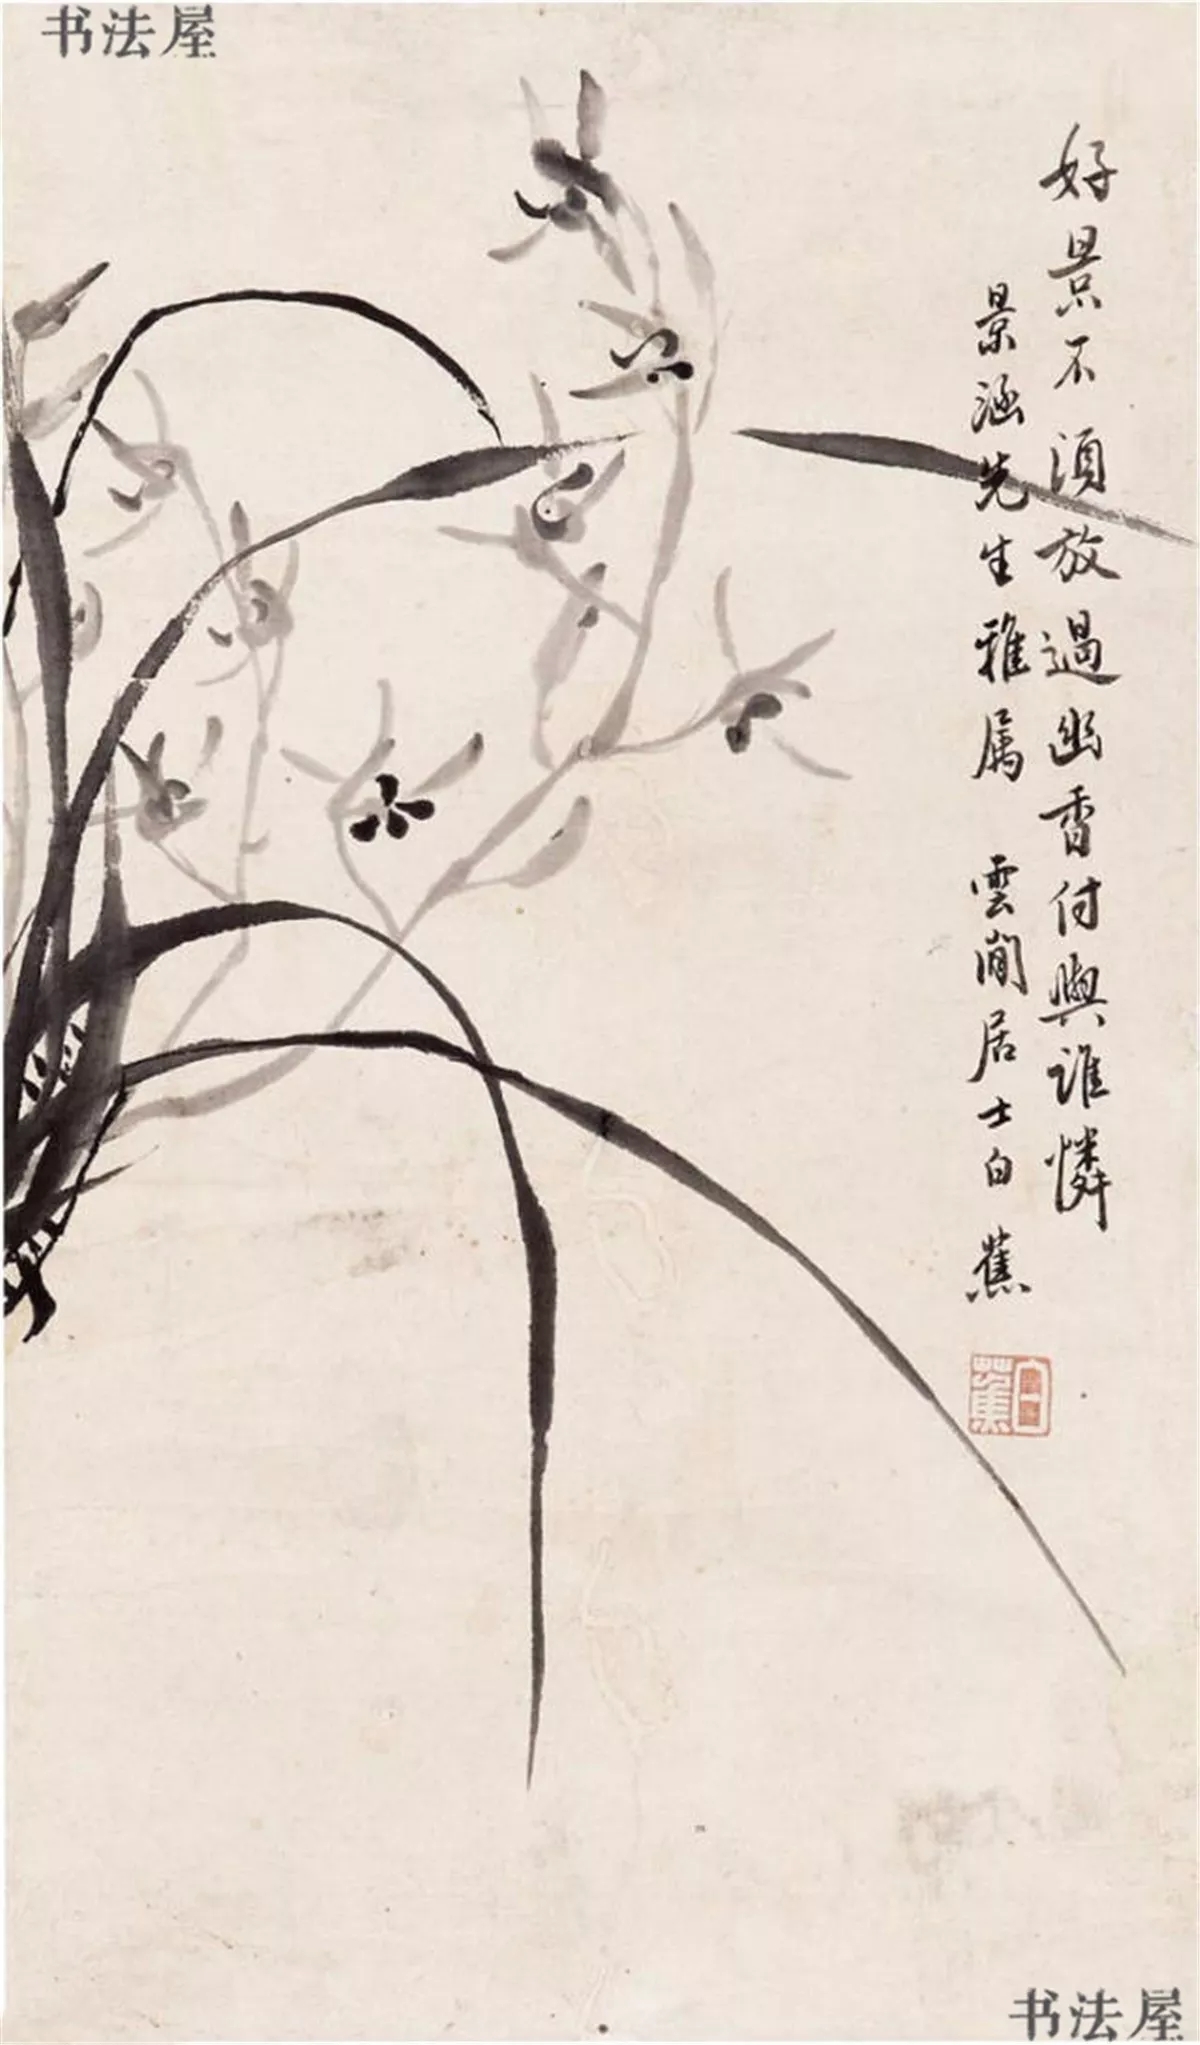 书法屋
好景不須放過幽香付與誰憐
景涵先生雅属 雲間居士白蕉
白蕉
书法屋